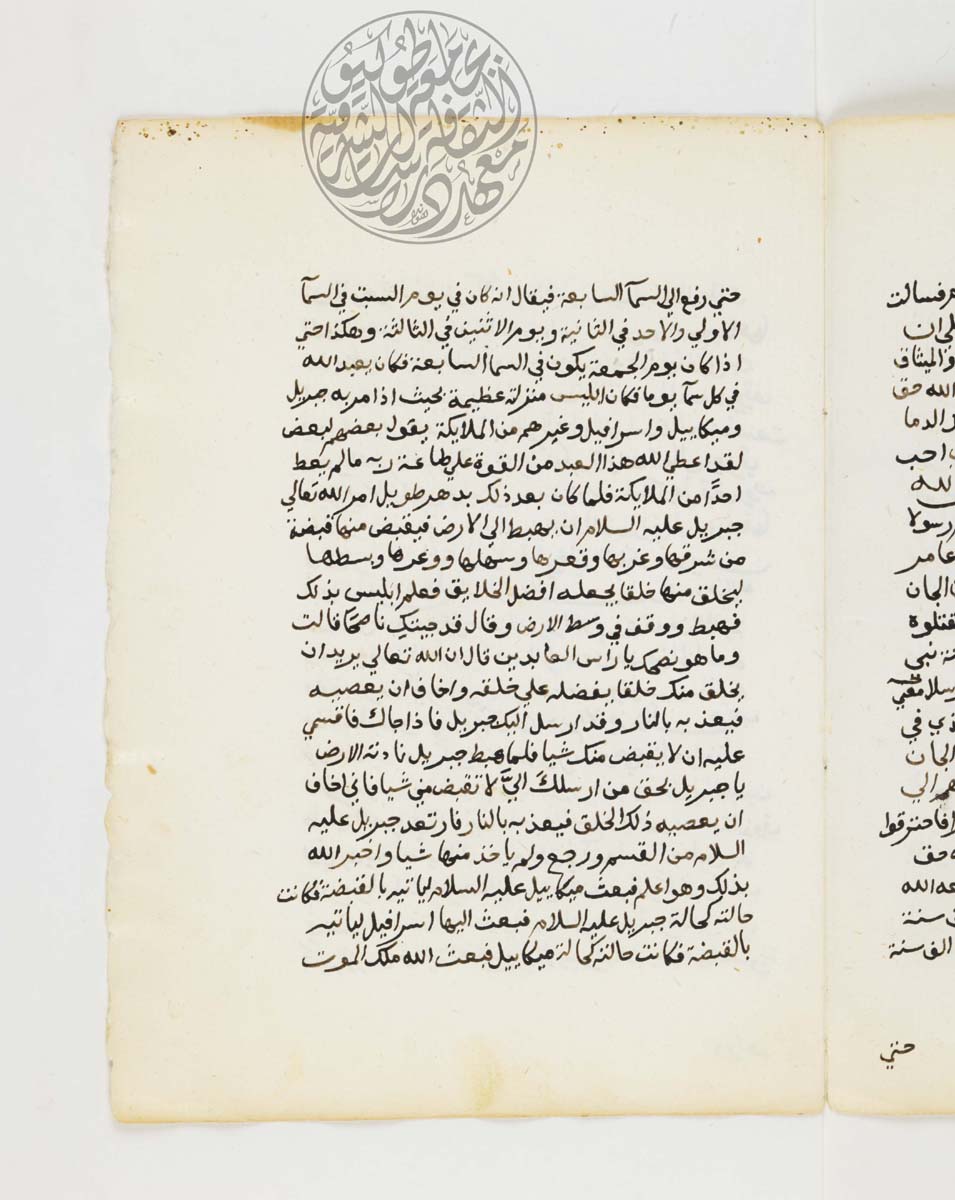 حتي رفع الي السمآ السابعة فيقال انه كان في يوم السبت في السمآ
الاولي والاحد في الثانية ويوم الاثنين في الثالثة وهكذا حتي
اذا كان يوم الجمعة يكون في السمآ السابعة فكان يعبد الله
في كل سمآ يوما فكان ابليس منزلته عظيمة بحيث اذا مر به جبريل
وميكاييل واسرافيل وغيرهم من الملايكة يقول بعضهم لبعض
لقد اعطي الله هذا العبد من القوة علي طاعة ربه ما لم يعط
احدًا من الملايكة فلما كان بعد ذلك بدهر طويل امر الله تعالي
جبريل عليه السلام ان يهبط الي الارض فيقبض منها قبضة
من شرقها وغربها وقعرها وسهلها ووعرها وبسطها
ليخلق منها خلقا يجعله افضل الخلايق فعلم ابليس بذلك
فهبط ووقف في وسط الارض وقال قد جيتك ناصحًا قالت
وما هو نصحك يا راس العابدين قال ان الله تعالي يريد ان
يخلق منك خلقا يفضله علي خلقه واخاف ان يعصيه
فيعذبه بالنار وقد ارسل اليك جبريل فاذا جاك فاقسمي
عليه ان لا يقبض منك شيا فلما هبط جبريل نادته الارض
يا جبريل بحق من ارسلك اليَّ لا تقبض مني شيا فاني اخاف
ان يعصيه ذلك الخلق فيعذبه بالنار فارتعد جبريل عليه
السلام من القسم ورجع ولم ياخذ منها شيا واخبر الله
بذلك وهو اعلم فبعث ميكاييل عليه السلام لياتيه بالقبضة فكانت
حالته كحالة جبريل عليه السلام فبعث اليها اسرافيل لياتيه
بالقبضة فكانت حالته كحالة ميكاييل فبعث الله ملك الموت
فسالت
والميثاق
الله حق
الدما
احب
الله
رسولا
عامر
الجان
نبي
في
الجان
الي
فاحترقوا
حق
الله
سنة
الف سنة
حتي